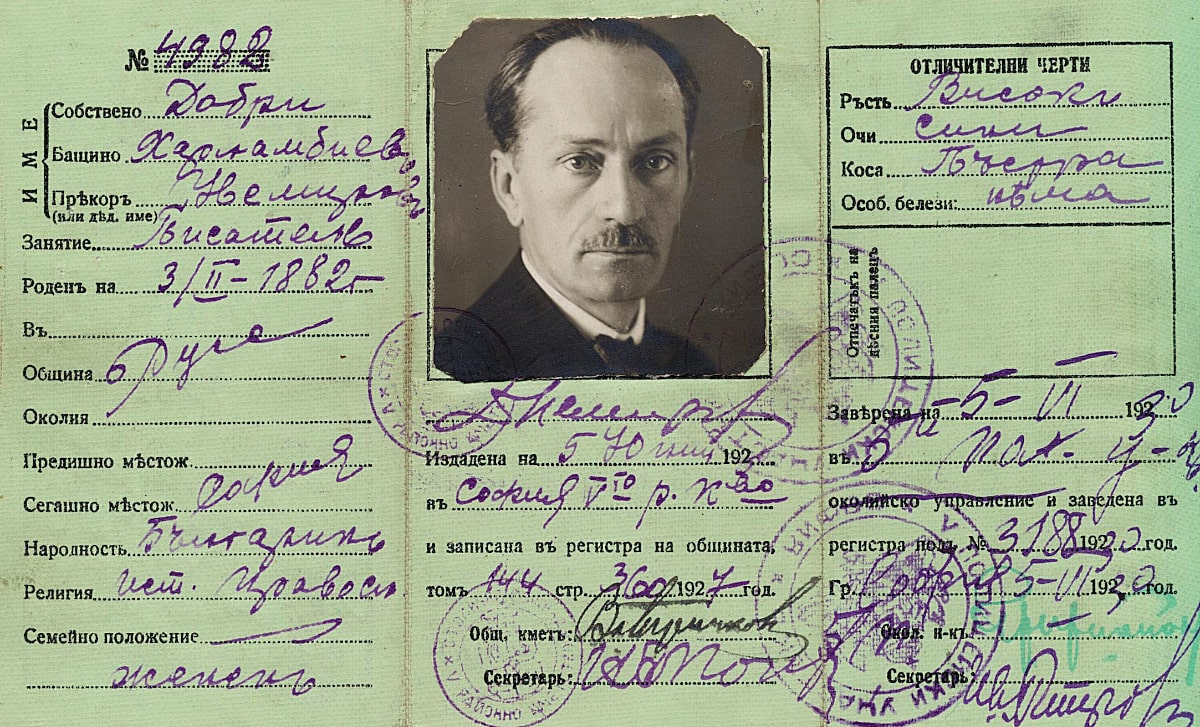 № 4982
ИМЕ
Собствено Добри
Бащино Харламбиевъ
Прѣкоръ Немировъ
(или дѣд. име)
Занятие Писатель
Роденъ на 3/II-1882 г
Въ
Община Русе
Околия
Предишно мѣстож.
Сегашно мѣстож. София
Народность Българинъ
Религия ист. Правосл
Семейно положение
жененъ
Издадена на 5 Юний 192
въ София Vто р. к 30
и записана въ регистра на общината,
томъ 144 стр. 360 1927 год.
Общ. кметъ:
Секретарь:
ОТЛИЧИТЕЛНИ ЧЕРТИ
Ръстъ Високъ
Очи сини
Коса Пъстра
Особ. белези: нѣма
Отпечатъкъ на
дѣсния палецъ
Завѣрена на 5-III 1930
въ
околийско управление и заведена въ
регистра подъ № 3188 1930 год.
Гр. София 5-III 1930
Окол. н-къ
Секретарь: